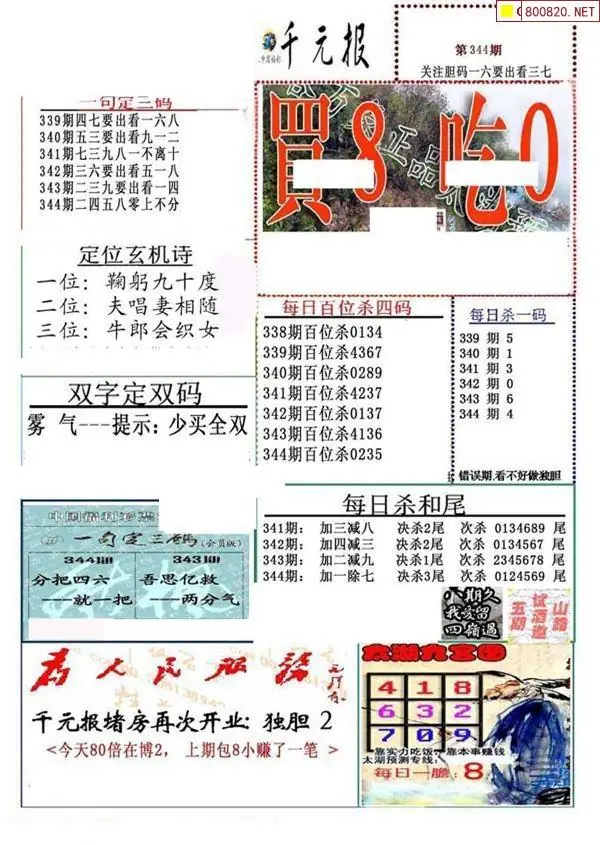 800820.NET
千元报
第344期
关注胆码一六要出看三七
買8吃0
一句定三码
339期四七要出看一六八
340期五三要出看九一二
341期七三九八一不离十
342期三六要出看五一八
343期二三九要出看一四
344期二四五八零上不分
定位玄机诗
一位：鞠躬九十度
二位：夫唱妻相随
三位：牛郎会织女
每日百位杀四码
338期百位杀0134
339期百位杀4367
340期百位杀0289
341期百位杀4237
342期百位杀0137
343期百位杀4136
344期百位杀0235
每日杀一码
339 期 5
340 期 1
341 期 3
342 期 0
343 期 6
344 期 4
错误期.看不好做独胆
双字定双码
雾 气---提示：少买全双
每日杀和尾
341期： 加三减八 决杀2尾 次杀 0134689 尾
342期： 加四减三 决杀2尾 次杀 0134567 尾
343期： 加二减九 决杀1尾 次杀 2345678 尾
344期： 加一除七 决杀3尾 次杀 0124569 尾
中国福利彩票
一句定三码(会员版)
344期 343期
分把四六 吾思亿救
——就一把 ——两分气
八期久
我爱留
四嶺過
山路
试酒邀
五期
为人民服务
千元报堵房再次开业: 独胆 2
<今天80倍在博2， 上期包8小赚了一笔 >
太湖九宫图
4 1 8
6 3 2
7 0 9
靠实力吃饭，靠本事赚钱
太湖预测专线:
每日一胆: 8